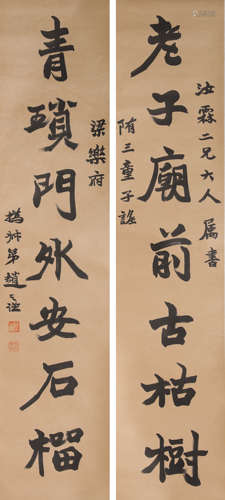 汝霖二兄大人属书
老子廟前古枯樹
隋三童子謠
梁樂府
青瑣門外安石榴
撝叔弟趙之謙